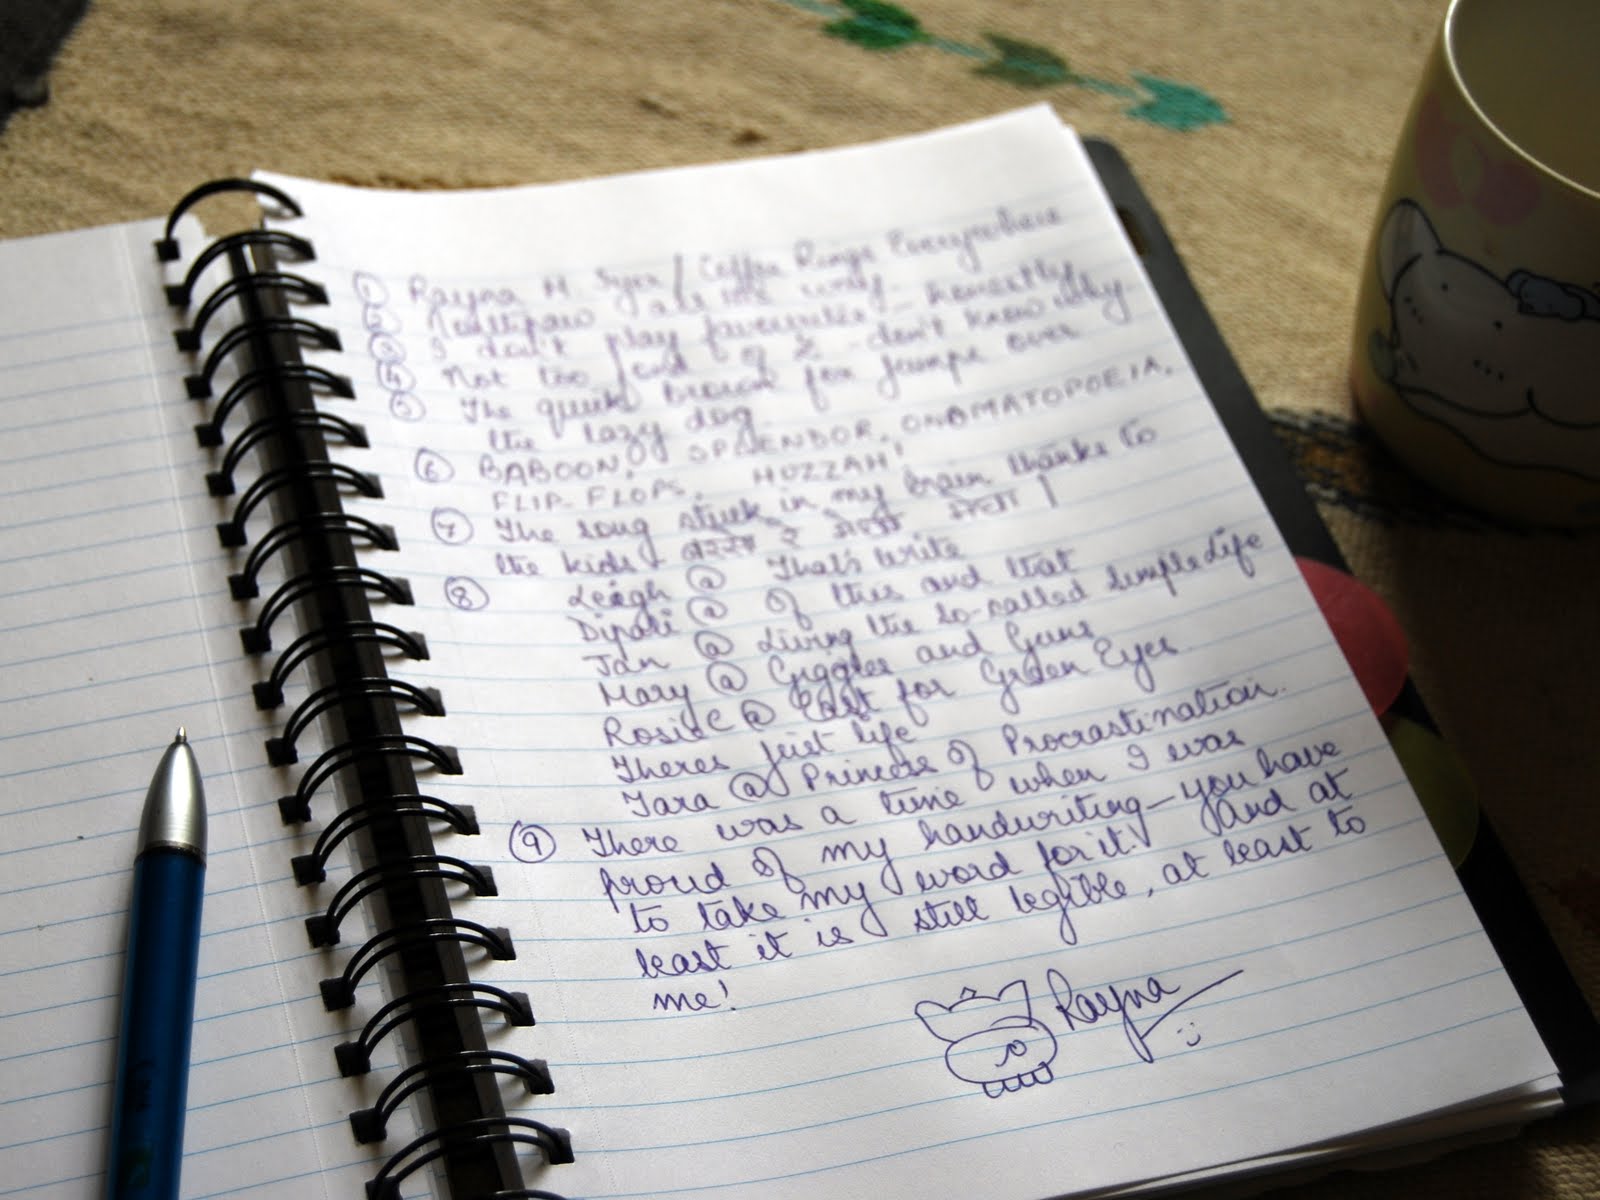 ① Rayna M. Iyer / Coffee Rings Everywhere
② all the way.
③ I don't play favourites - honestly
④ Not too fond of z - don't know why.
⑤ The quick brown fox jumps over
the lazy dog.
⑥ BABOON! SPLENDOR. ONOMATOPOEIA.
FLIP-FLOPS. HUZZAH!
⑦ The song stuck in my brain thanks to
the kids
⑧ Leigh @ That's Write
Dipali @ Of this and that
Jan @ Living the so-called Simple Life
Mary @ Giggles and Guns
Rosie @ East for Green Eyes
Theres just life
Tara @ Princess of Procrastination.
⑨ There was a time when I was
proud of my handwriting - you have
to take my word for it! And at
least it is still legible, at least to
me!
Rayna